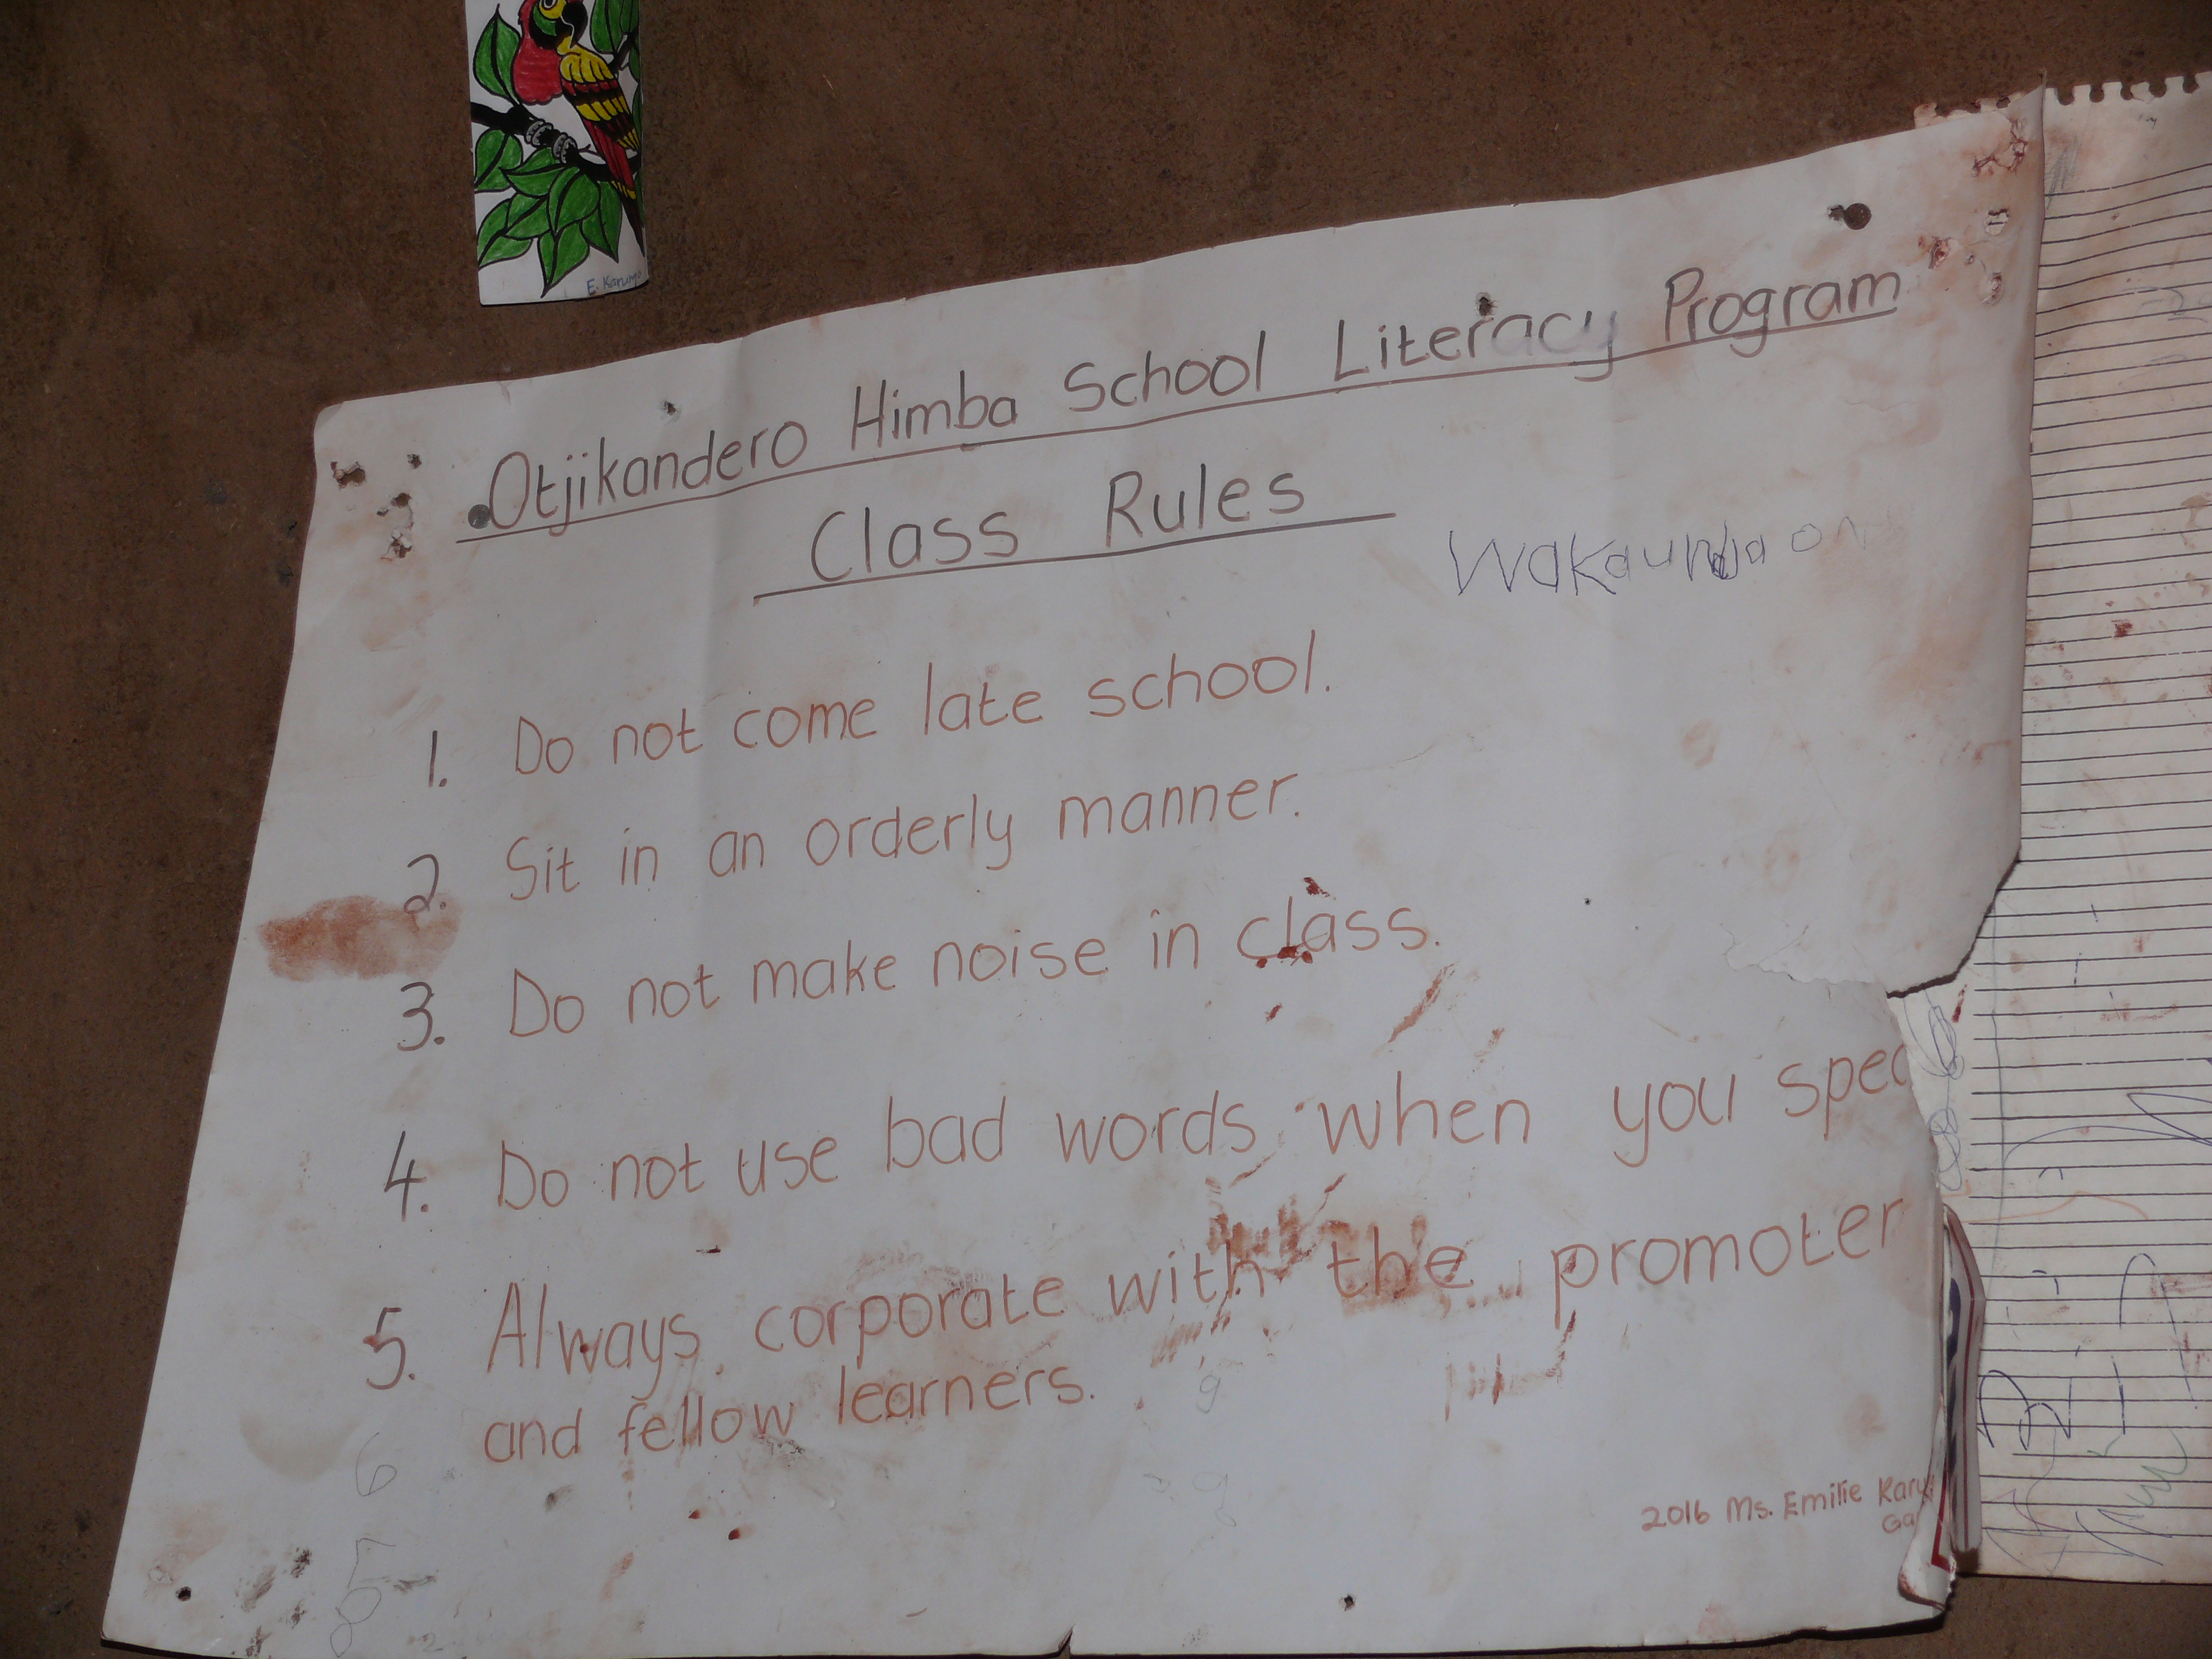 Otjikandero Himba School Literacy Program
Class Rules
1. Do not come late school.
2. Sit in an orderly manner.
3. Do not make noise in class.
4. Do not use bad words when you spea
5. Always corporate with the promoter
and fellow learners.
6
7
8
2016 Ms. Emilie